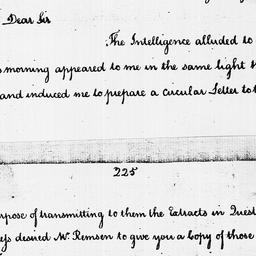 Dear Sir
The Intelligence alluded to
morning appeared to me in the same light
and induced me to prepare a Circular Letter to
225
purpose of transmitting to them the Extracts in Quest
desired Mr. Remsen to give you a Copy of those